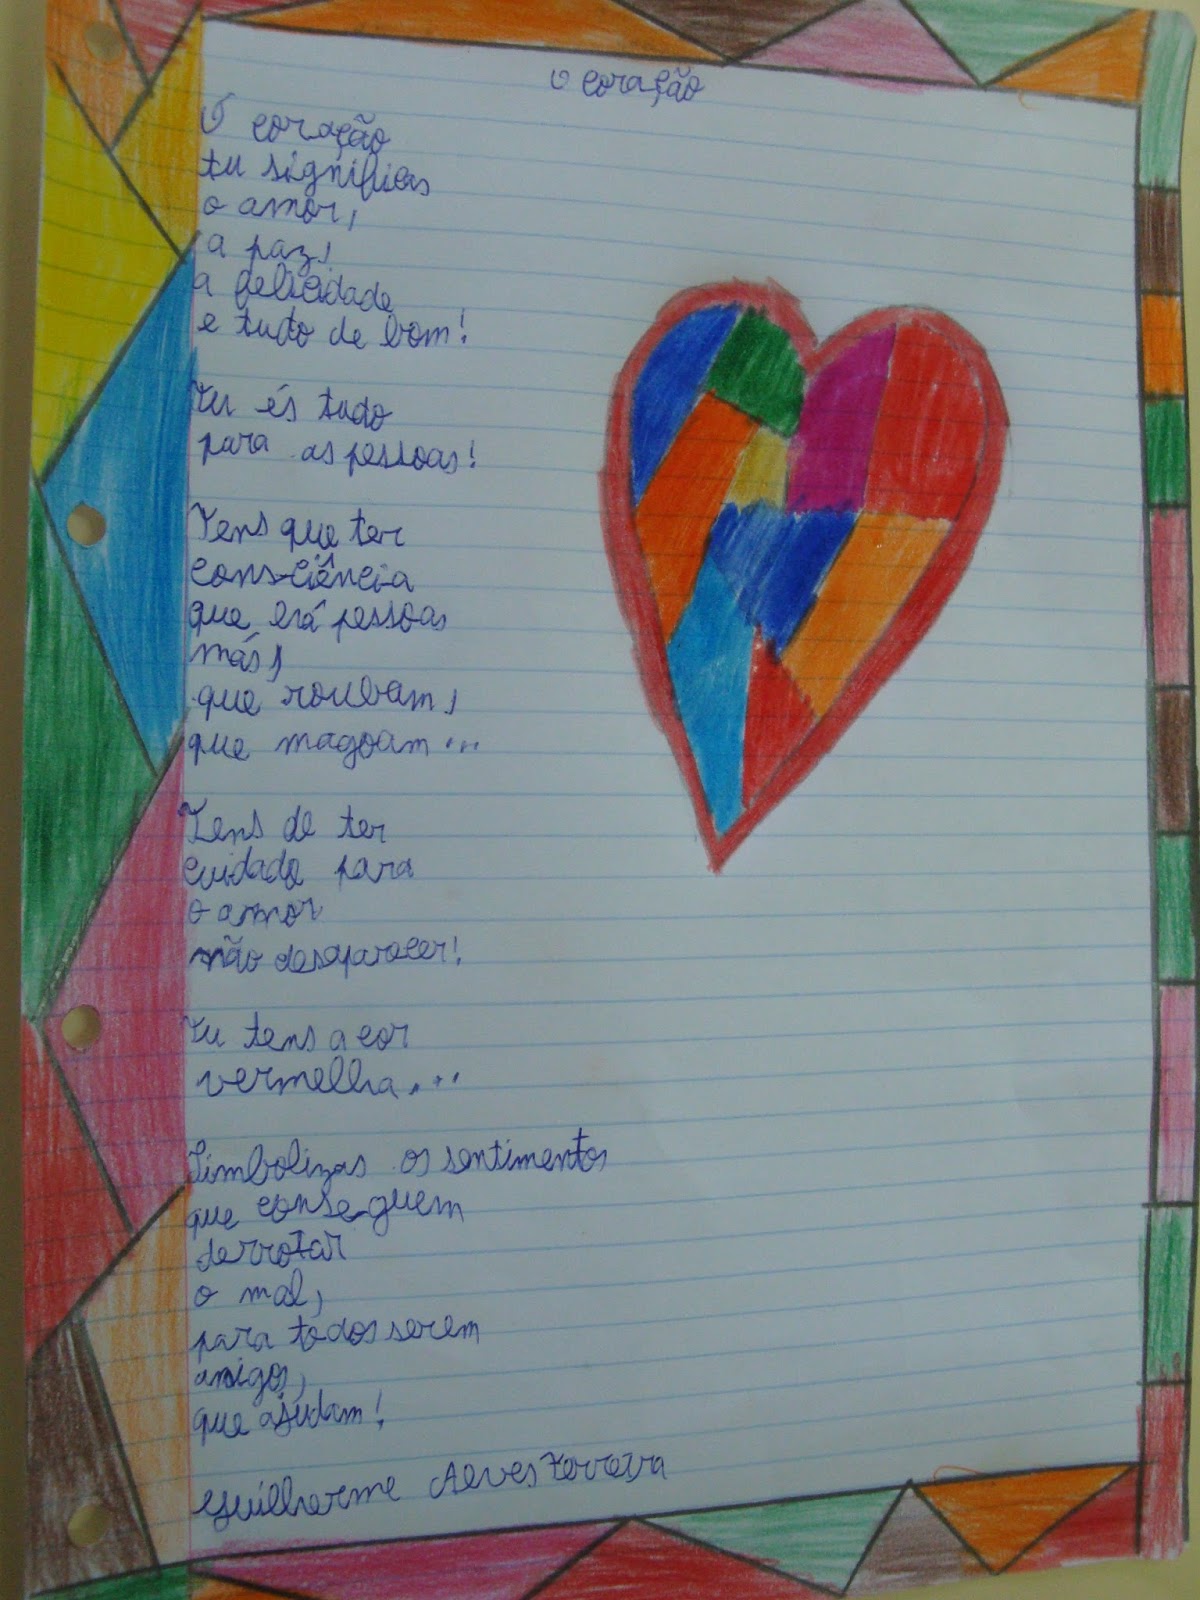 O coração
Ó coração
tu significas
o amor,
a paz,
a felicidade
e tudo de bom!
Tu és tudo
para as pessoas!
Tens que ter
consciência
que há pessoas
más,
que roubam,
que magoam...
Tens de ter
cuidado para
o amor
não desaparecer!
Tu tens a cor
vermelha...
Simbolizas os sentimentos
que conseguem
derrotar
o mal,
para todos serem
amigos,
que ajudam!
Guilherme Alves Ferreira